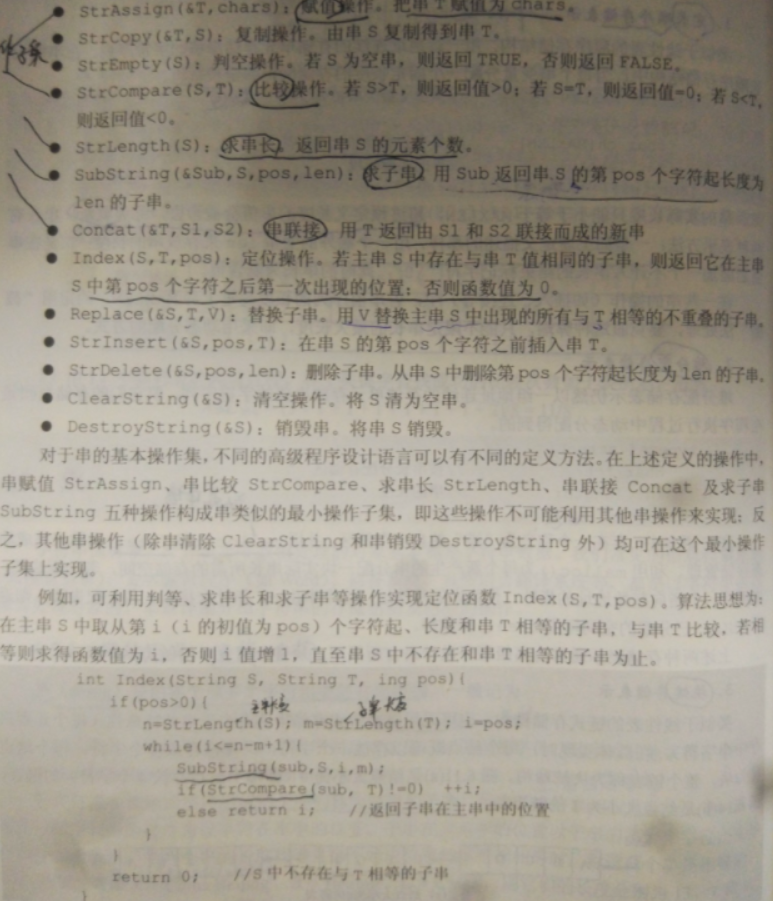 StrAssign(&T,chars): 赋值操作。把串 T 赋值为 chars。
StrCopy(&T,S): 复制操作。由串 S 复制得到串 T。
StrEmpty(S): 判空操作。若 S 为空串，则返回 TRUE，否则返回 FALSE。
StrCompare(S,T): 比较操作。若 S>T，则返回值>0；若 S=T，则返回值=0；若 S<T，
则返回值<0。
StrLength(S): 求串长，返回串 S 的元素个数。
SubString(&Sub,S,pos,len): 求子串，用 Sub 返回串 S 的第 pos 个字符起长度为
len 的子串。
Concat(&T,S1,S2): 串联接，用 T 返回由 S1 和 S2 联接而成的新串
Index(S,T,pos): 定位操作。若主串 S 中存在与串 T 值相同的子串，则返回它在主串
S 中第 pos 个字符之后第一次出现的位置；否则函数值为 0。
Replace(&S,T,V): 替换子串。用 V 替换主串 S 中出现的所有与 T 相等的不重叠的子串。
StrInsert(&S,pos,T): 在串 S 的第 pos 个字符之前插入串 T。
StrDelete(&S,pos,len): 删除子串。从串 S 中删除第 pos 个字符起长度为 len 的子串。
ClearString(&S): 清空操作。将 S 清为空串。
DestroyString(&S): 销毁串。将串 S 销毁。
对于串的基本操作集，不同的高级程序设计语言可以有不同的定义方法。在上述定义的操作中，
串赋值 StrAssign、串比较 StrCompare、求串长 StrLength、串联接 Concat 及求子串
SubString 五种操作构成串类似的最小操作子集，即这些操作不可能利用其他串操作来实现；反
之，其他串操作（除串清除 ClearString 和串销毁 DestroyString 外）均可在这个最小操作
子集上实现。
例如，可利用判等、求串长和求子串等操作实现定位函数 Index(S,T,pos)。算法思想为：
在主串 S 中取从第 i（i 的初值为 pos）个字符起、长度和串 T 相等的子串，与串 T 比较，若相
等则求得函数值为 i，否则 i 值增 1，直至串 S 中不存在和串 T 相等的子串为止。
int Index(String S, String T, ing pos){
if(pos>0){
n=StrLength(S); m=StrLength(T); i=pos;
while(i<=n-m+1){
SubString(sub,S,i,m);
if(StrCompare(sub, T)!=0) ++i;
else return i; //返回子串在主串中的位置
}
}
return 0; //S 中不存在与 T 相等的子串
}